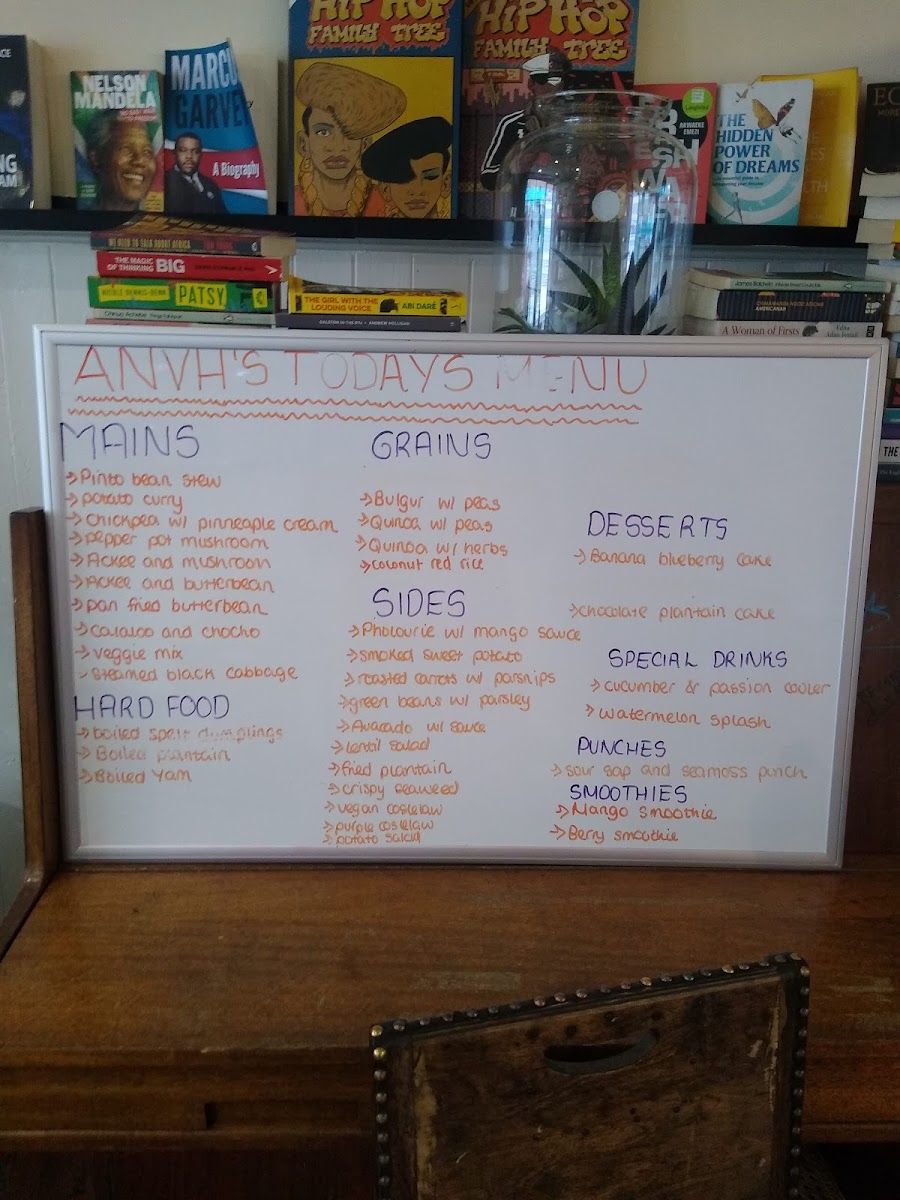 NELSON
MANDELA
MARCU
GARVEY
A Biography
HIP HOP
FAMILY TREE
HIP HOP
FAMILY TREE
AKWAEKE
EMEZI
THE
HIDDEN
POWER
OF DREAMS
WE NEED TO TALK ABOUT AFRICA
THE MAGIC
OF THINKING BIG
NICOLE DENNIS-BENN PATSY
Chinua Achebe
THE GIRL WITH THE
LOUDING VOICE ABI DARÉ
James Baldwin
CHIMAMANDA NGOZI ADICHIE
AMERICANAH
A Woman of Firsts Edna
THE
ANVH'S TODAYS MENU
MAINS
→Pinto bean stew
→potato curry
→Chickpea w/ pinneaple cream
→pepper pot mushroom
→Ackee and mushroom
→Ackee and butterbean
→pan fried butterbean
→Calaloo and chocho
→veggie mix
→steamed black cabbage
HARD FOOD
→boiled spelt dumplings
→Boiled plantain
→Boiled yam
GRAINS
→Bulgur w/ peas
→Quinoa w/ peas
→Quinoa w/ herbs
→coconut red rice
SIDES
→Pholourie w/ mango sauce
→smoked sweet potato
→roasted carrots w/ parsnips
→green beans w/ parsley
→Avacado w/ sauce
→lentil salad
→fried plantain
→crispy seaweed
→vegan coslelaw
→purple coslelaw
→potato salad
DESSERTS
→Banana blueberry cake
→chocolate plantain cake
SPECIAL DRINKS
→cucumber & passion cooler
→watermelon splash
PUNCHES
→sour sap and seamoss punch
SMOOTHIES
→Mango smoothie
→Berry smoothie